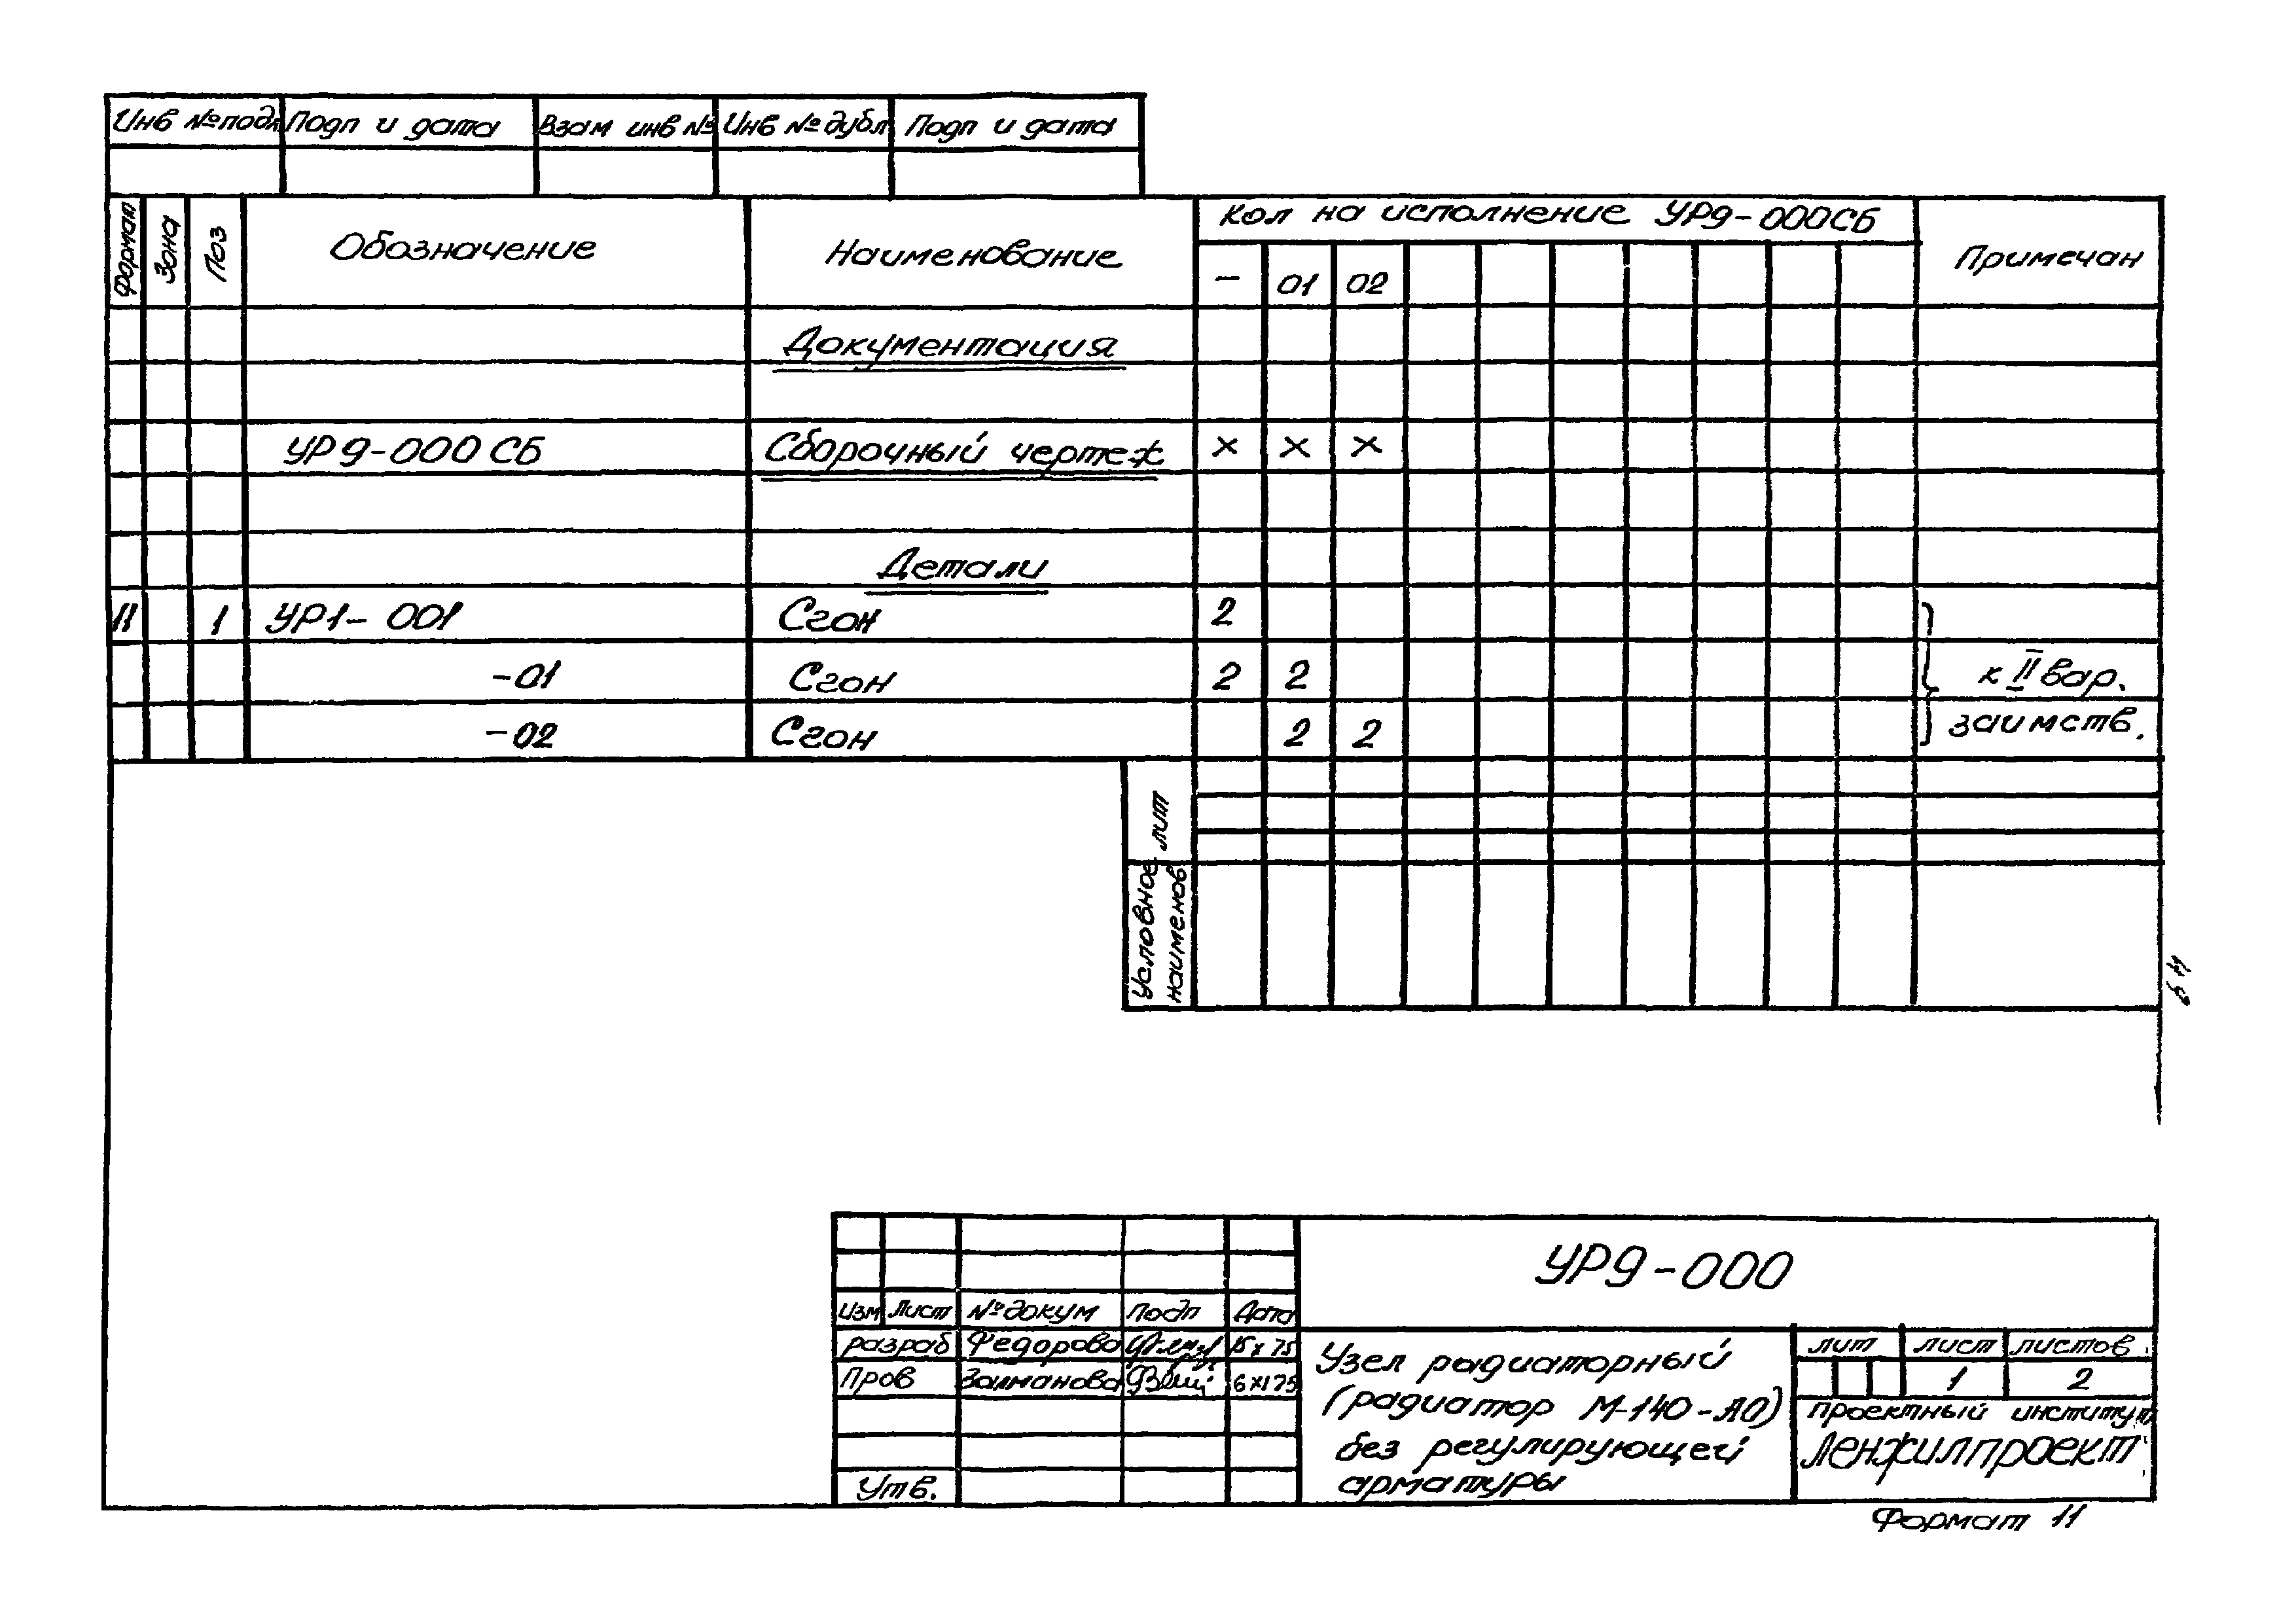 Инв № подл Подп и дата Взам инв № Инв № дубл Подп и дата
Формат Зона Поз Обозначение Наименование кол на исполнение УР9-000СБ Примечан
- 01 02
Документация
УР9-000 СБ Сборочный чертеж × × ×
Детали
11 1 УР1-001 Сгон 2
-01 Сгон 2 2 к II вар.
-02 Сгон 2 2 заимств.
лит
Условное
наименов
УР9-000
Изм Лист № докум Подп Дата
разраб Федорова 15 X 75
Пров Залманова 6 XI 75
Утв.
Узел радиаторный
(радиатор М-140-АО)
без регулирующей
арматуры
лит лист листов
1 2
проектный институт
Ленжилпроект
Формат 11